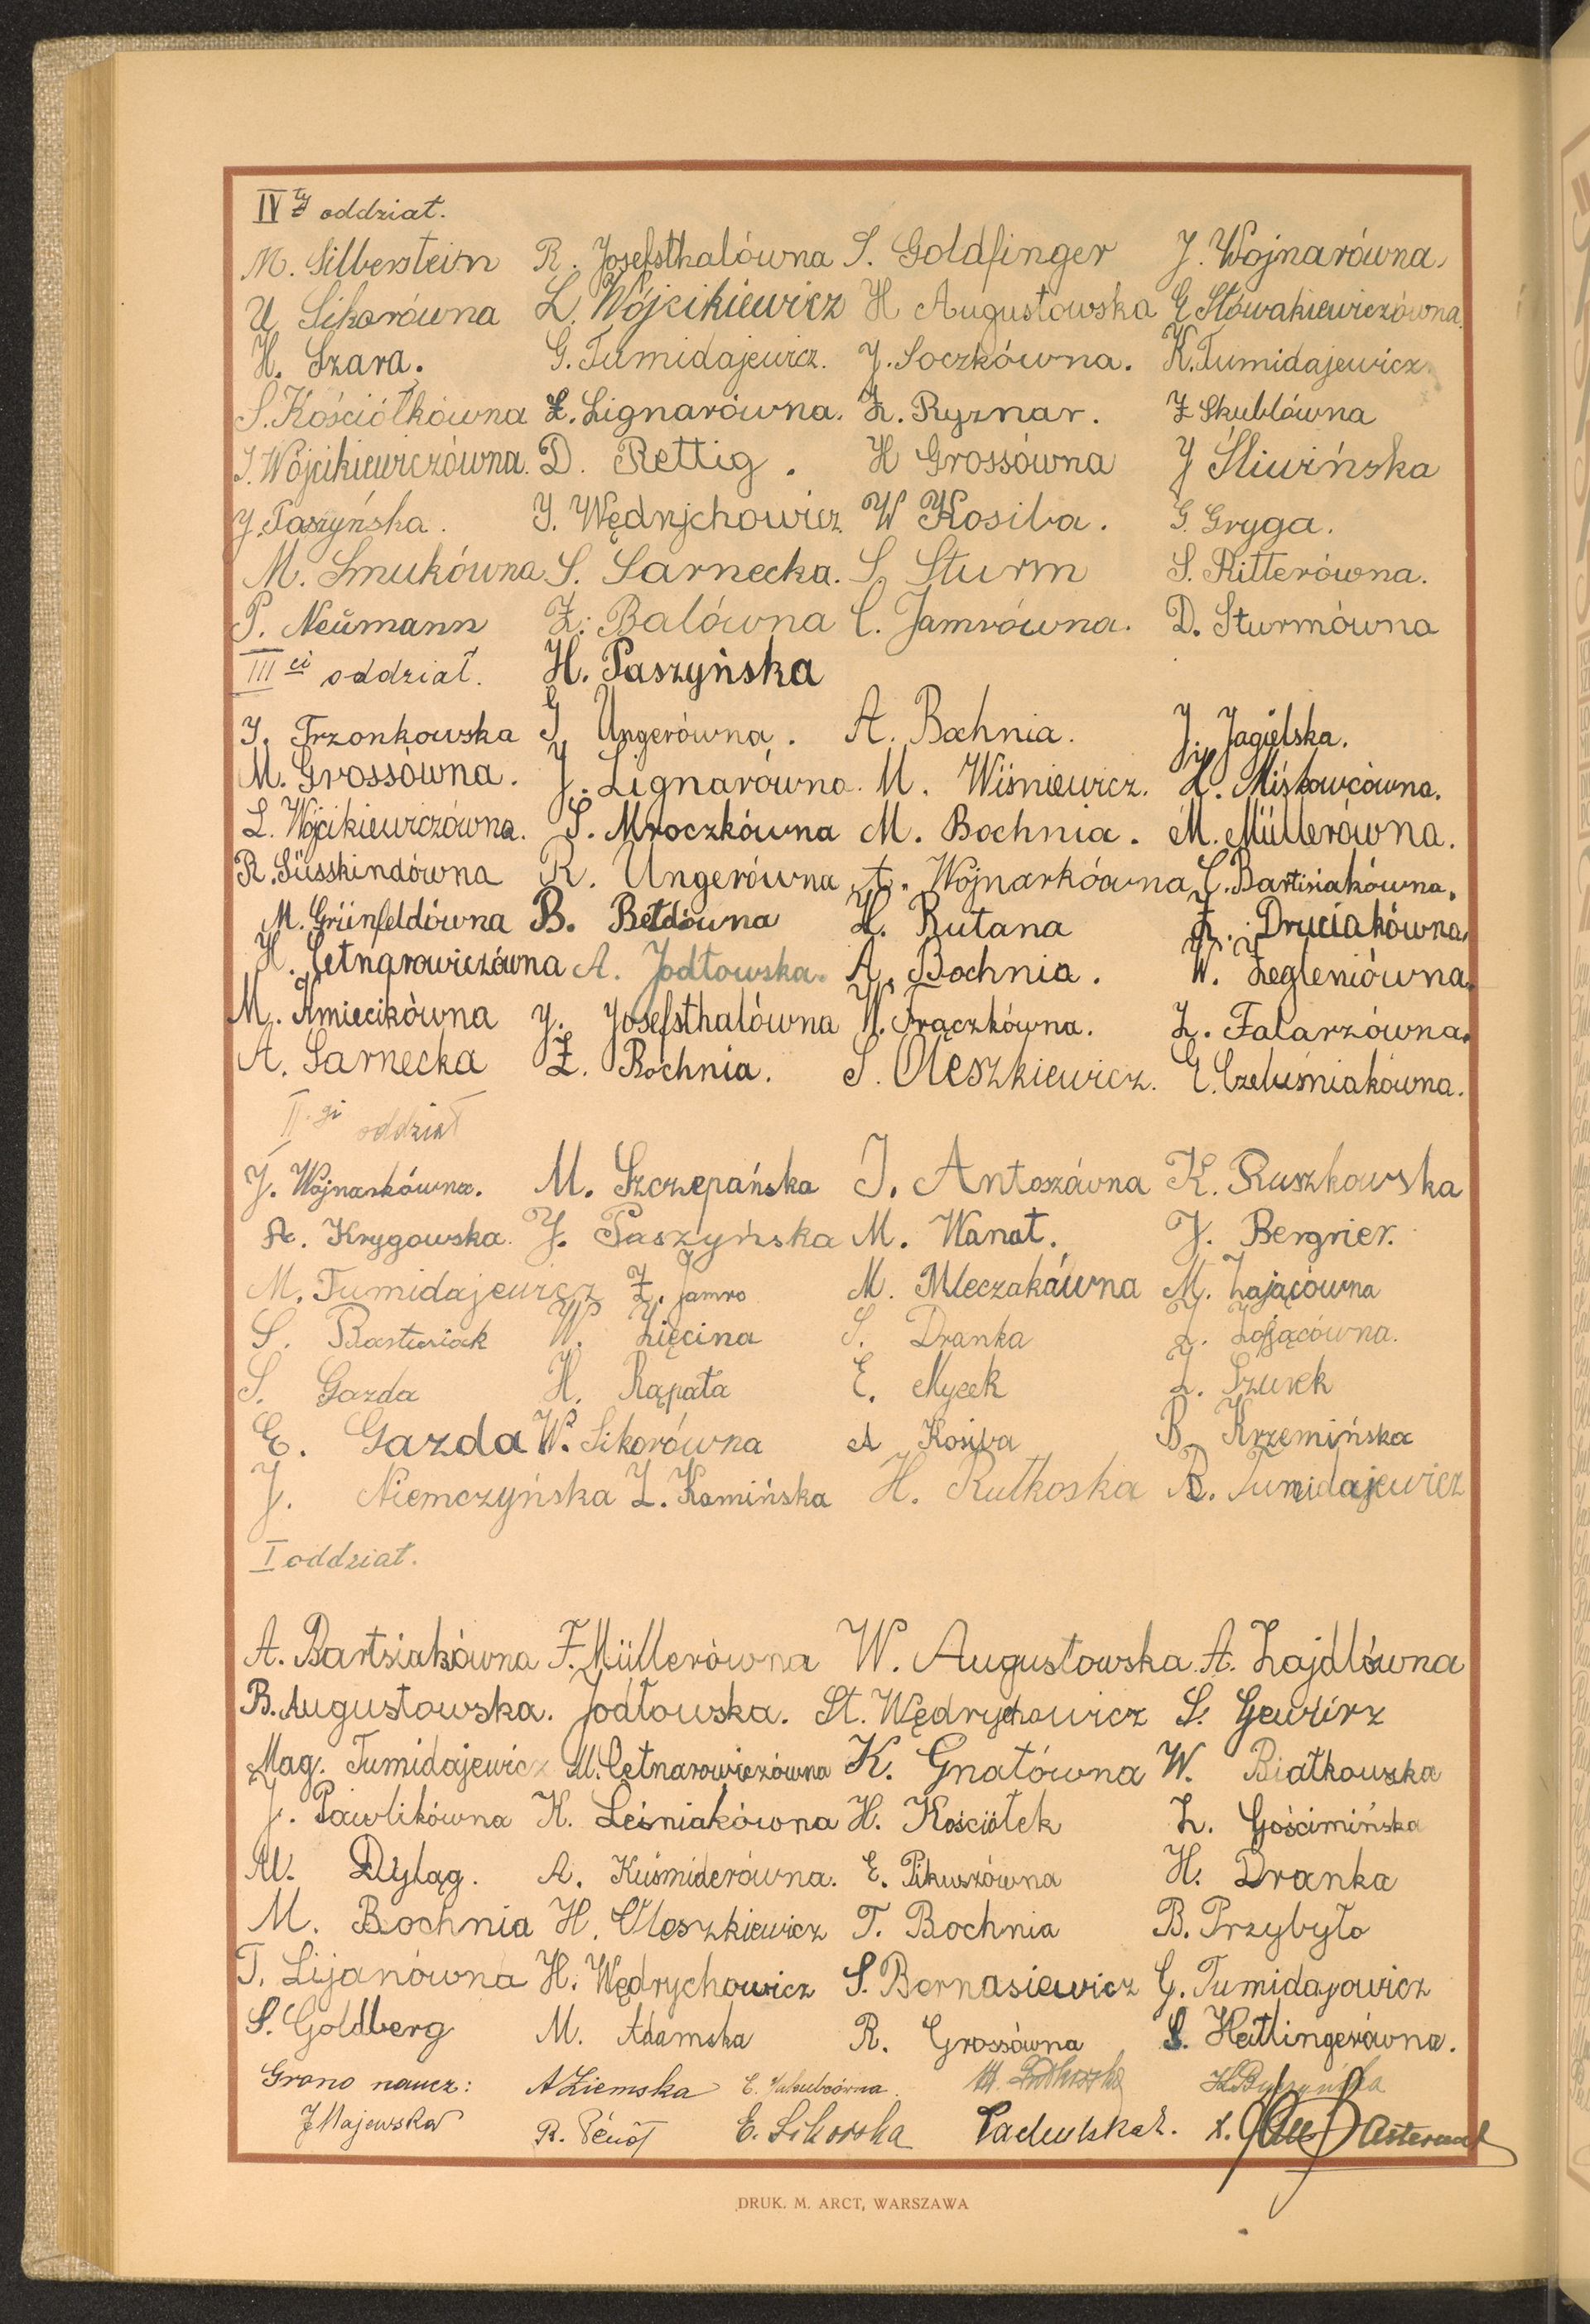 IVty oddział.
M. Silberstein R. Josefsthalówna S. Goldfinger J. Wojnarówna.
U Sikorówna L. Wójcikiewicz H Augustowska E Słówakiewiczówna.
H. Szara. G. Tumidajewicz. J. Soczkówna. K. Tumidajewicz
S. Kościółkówna Z. Lignarówna. Z. Ryznar. Z Skublówna
J. Wójcikiewiczówna. D. Rettig. H Grossówna J Śliwińska
J. Paszyńska. J. Wędrychowicz. W Kosiba. G. Gryga.
M. Smukówna S. Sarnecka. S. Sturm S. Ritterówna.
P. Neŭmann Z. Balówna C. Jamrówna. D. Sturmówna
IIIci oddział. H. Paszyńska
J. Trzonkowska G. Ungerówna. A. Bochnia. J. Jagielska.
M. Grossówna. J. Lignarówna. M. Wiśniewicz. H. Miśkowcówna.
L. Wójcikiewiczówna. S. Mroczkówna M. Bochnia. M. Müllerówna.
R. Süsskindówna R. Ungerówna A. Wojnarkówna C. Bartisiakówna.
M. Grünfeldówna B. Betdówna H. Rutana Z. Druciakówna.
H. Cetnarowiczówna A. Jodłowska. A. Bochnia. W. Zegleniówna.
M. Kmiecikówna J. Josefsthalówna W. Frączkówna. Z. Falarzówna.
A. Sarnecka Z. Bochnia. S. Oleszkiewicz. E. Czeluśniakówna.
II.gi oddział
J. Wojnarkówna. M. Szczepańska J. Antoszówna K. Ruszkowska
A. Krygowska. J. Paszyńska M. Wanat. J. Bergrier.
M. Tumidajewicz Z. Jamro M. Mleczakówna M. Zającówna
S. Bartusiak W. Zięcina S. Dranka Z. Zającówna.
S. Gazda H. Rąpała E. Mycek Z. Szurek
E. Gazda W. Sikorówna A Kosiba B Krzemińska
J. Niemczyńska Z. Kamińska H. Rutkoska R. Tumidajewicz
I oddział.
A. Bartsiakówna F. Müllerówna W. Augustowska A. Zajdlówna
B. Augustowska. Jodłowska. St. Wędrychowicz S. Gewirz
Mag. Tumidajewicz M. Cetnarowiczówna K. Gnatówna W. Białkowska
J. Pawlikówna K. Leśniakówna H. Kościółek Z. Gościmińska
M. Dyląg. A. Kuśmiderówna. E. Pikuszówna H. Dranka
M. Bochnia H. Oleszkiewicz T. Bochnia B. Przybyło
T. Lijanówna H. Wędrychowicz S. Bernasiewicz G. Tumidajowicz
S. Goldberg M. Adamska R. Grossówna S. Heitlingerówna.
Grono naucz: A Ziemska E. Jakubówna
J Majewska R. Pénot E. Sikorska Padulska
DRUK. M. ARCT, WARSZAWA